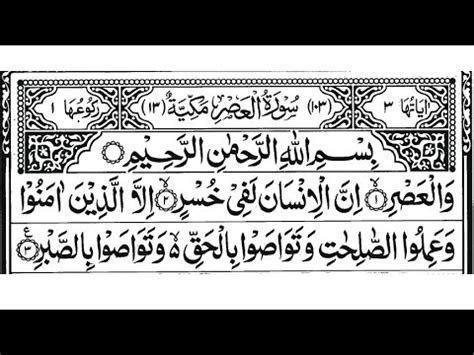 اٰیَاتُهَا ٣ (١٠٣) سُوْرَةُ الْعَصْرِ مَكِّيَّةٌ (١٣) رُكُوْعُهَا ١
بِسْمِ اللهِ الرَّحْمٰنِ الرَّحِيْمِ
وَالْعَصْرِ ١ اِنَّ الْاِنْسَانَ لَفِيْ خُسْرٍ ٢ اِلَّا الَّذِيْنَ اٰمَنُوْا
وَعَمِلُوا الصّٰلِحٰتِ وَتَوَاصَوْا بِالْحَقِّ ۙ وَتَوَاصَوْا بِالصَّبْرِ ٣ ع